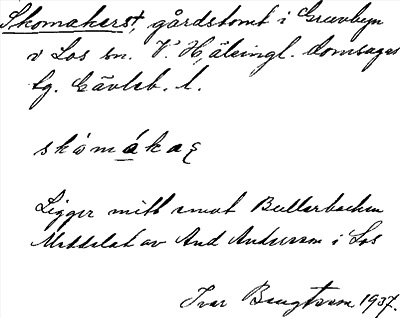 Skomakerst, gårdstomt i Gruvbyn
v Los sn. V. Hälsingl. domsagas
tg. Gävleb. l.
skómákaṣ
Ligger mitt emot Bullerbacken
Meddelat av And Andersson i Los
Ivar Bengtsson 1937.